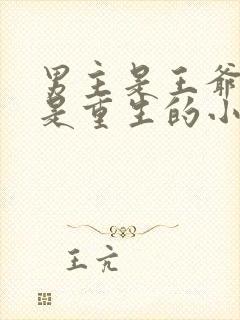 男主是王爷
是重生的小
王亢